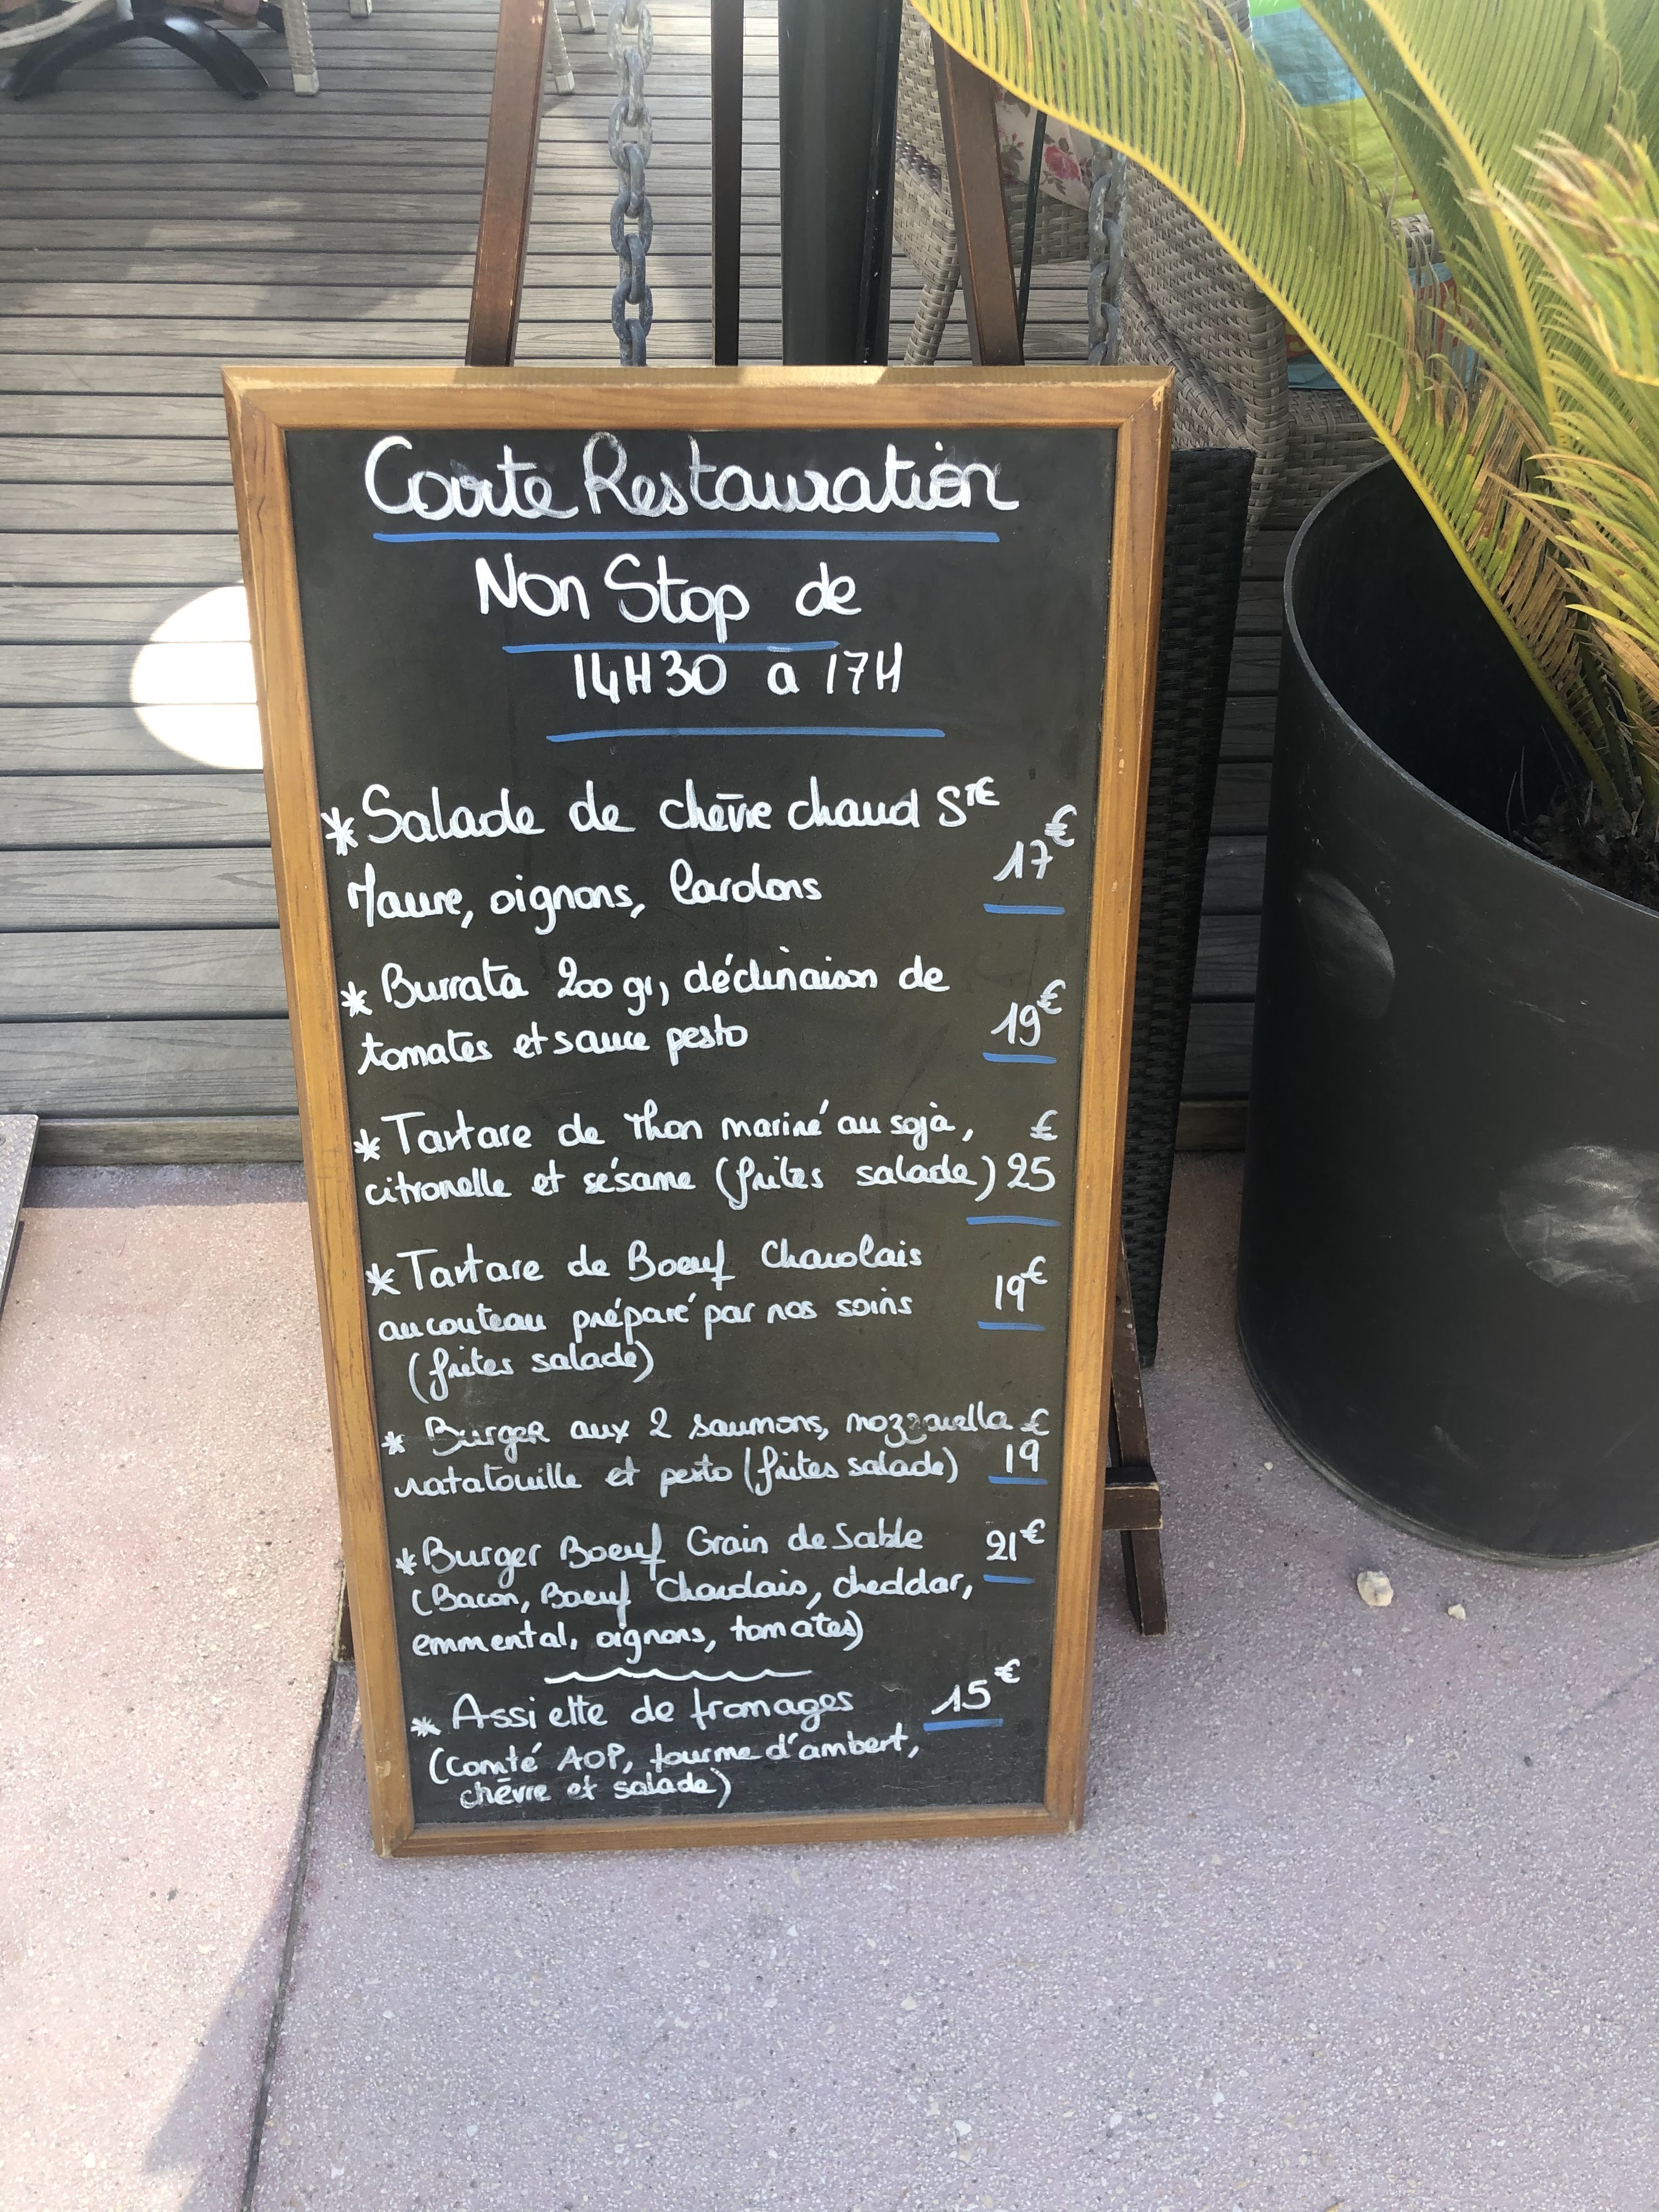 Carte Restauration
Non Stop de
14H30 a 17H
*Salade de chèvre chaud STE
Maure, oignons, lardons
17€
*Burrata 200 gr, déclinaison de
tomates et sauce pesto
19€
*Tartare de Thon mariné au sojà, €
citronelle et sésame (frites salade) 25
*Tartare de Boeuf Charolais
au couteau préparé par nos soins
19€
(frites salade)
* Burger aux 2 saumons, mozzarella €
ratatouille et pesto (frites salade) 19
*Burger Boeuf Grain de Sable 21€
(Bacon, Boeuf Charolais, cheddar,
emmental, oignons, tomates)
* Assiette de fromages 15€
(Comté AOP, fourme d'ambert,
chèvre et salade)